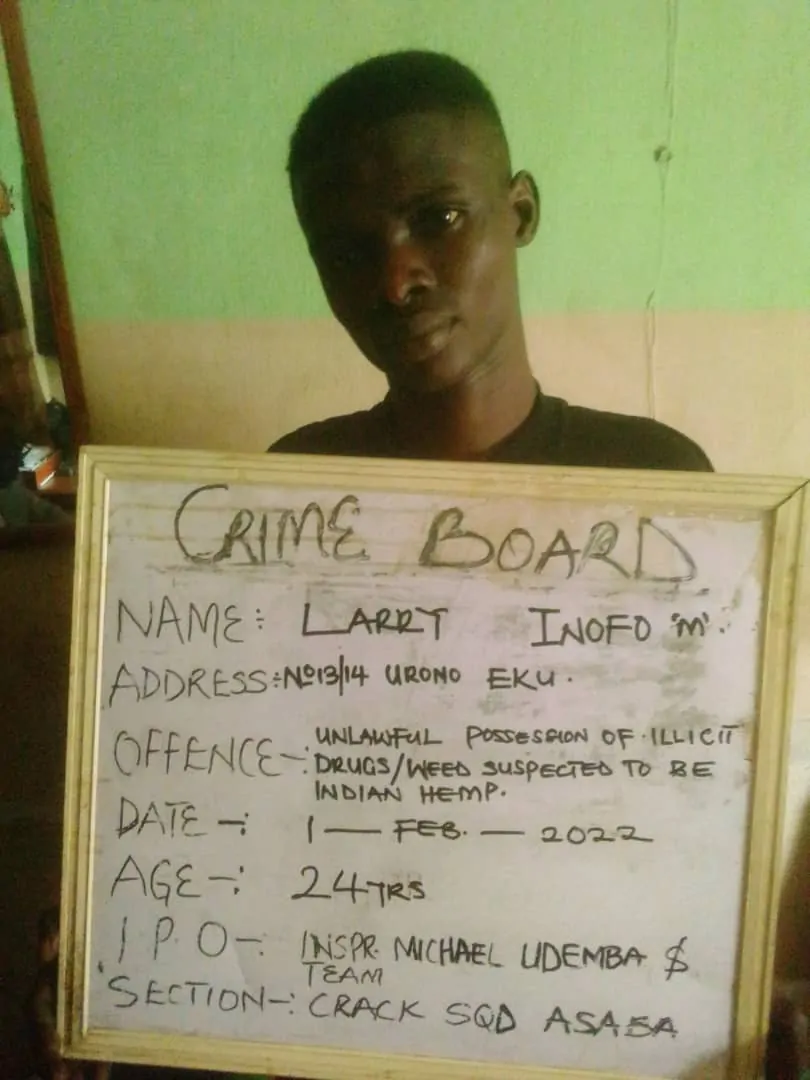 CRIME BOARD
NAME: LARRY INOFO "M".
ADDRESS: No13/14 URONO EKU.
OFFENCE-: UNLAWFUL POSSESSION OF ILLICIT
DRUGS/WEED SUSPECTED TO BE
INDIAN HEMP.
DATE-: 1 — FEB. — 2022
AGE-: 24YRS
I P O-: INSPR. MICHAEL UDEMBA $
TEAM
SECTION-: CRACK SQD ASABA